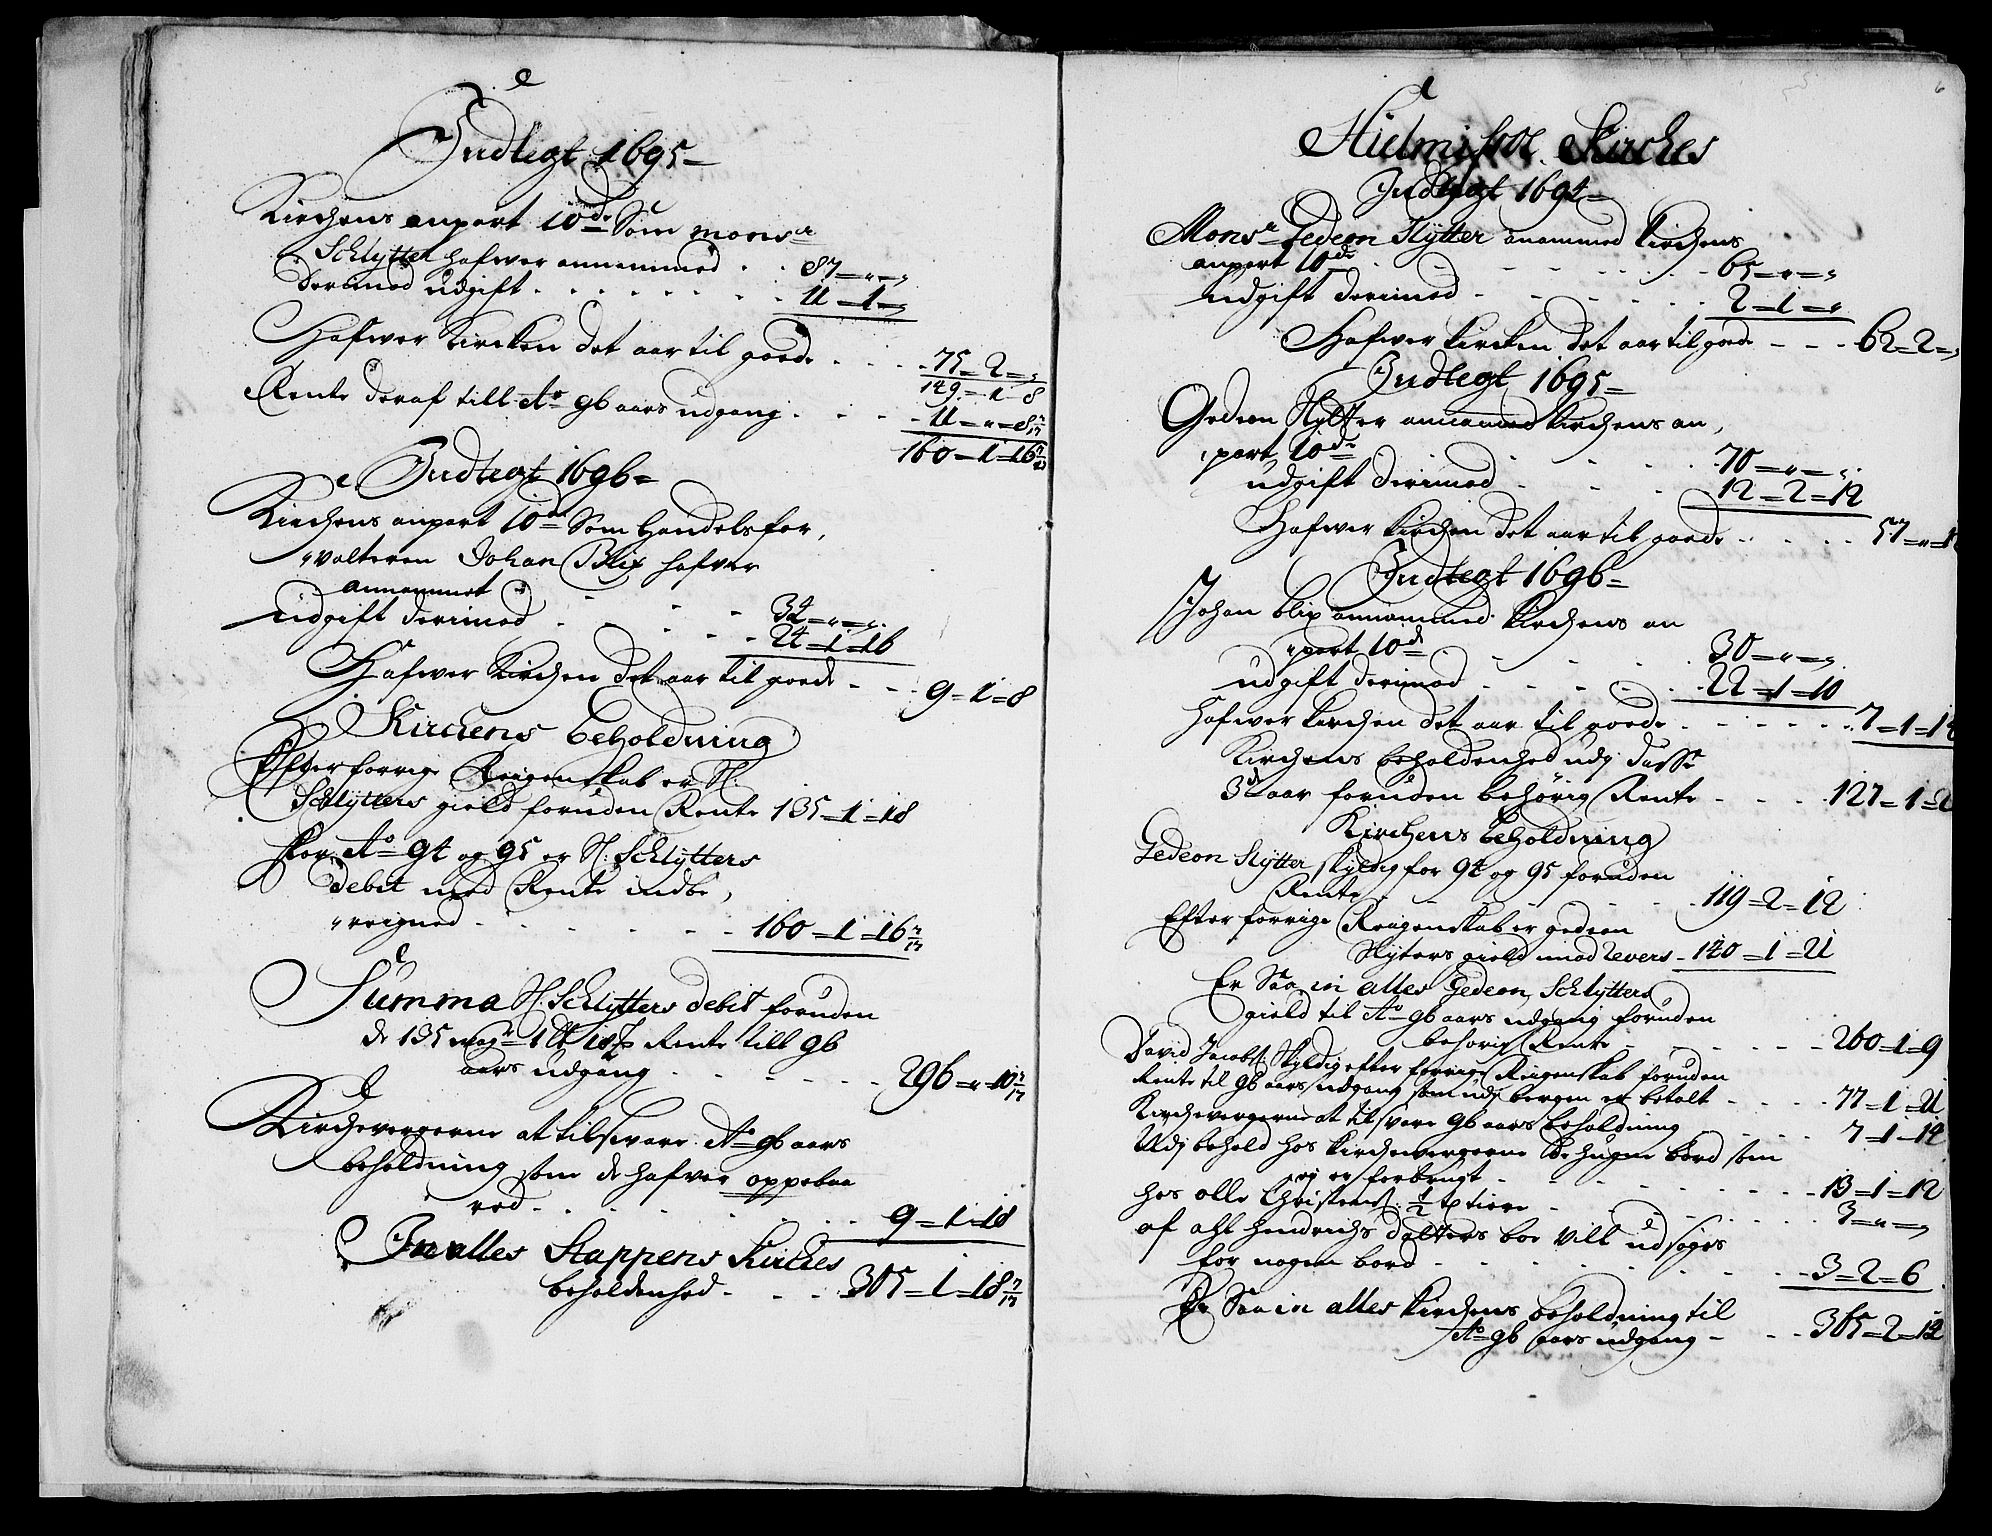 Indtegt 1695
Kirchens anpart 10de Som monsr
Schlytter hafwer annammed . . 87=„=„
derimod udgift . . . . . . . 11=1=„
Hafwer Kircken det aar til goede . . . 75=2=„
149=1=8
Rente deraf till Ao 96 aars udgang . . . 11=„=8 7/17
160=1=16 7/17
Indtegt 1696=
Kirchens anpart 10de Som Handelsfor,
„valteren Johan Blix hafver
annammet . . . 34=„=„
udgift derimod . . . 24=1=16
Hafwer Kirchen det aar til goede . . . 9=1=8
Kirchens beholdning
Efter forrige Reigenskab er H.
Schlytters gield foruden Rente 135=1=18
for Ao 94 og 95 er H. Schlytters
debit med Rente indbe,
„reigned . . . 160=1=16 7/17
Summa H. Schlytters debit foruden
de 135 1 18 Rente till 96
aars udgang . . . 296=„=10 7/17
Kirchewergerne at tilsware Ao 96 aars
beholdning som de hafver oppebaa
red . . . 9=1=18
In alles Stappens Kirches
beholdenhed . . . 305=1=18 7/17
6
Hielmisøe Kirches
Indtegt 1694=
Monsr Gedeon Slytter anammed Kirchens
anpart 10de . . . 65=„=„
udgift derimod . . . 2=1=„
Hafwer Kircken det aar til goede . . . 62=2=„
Indtegt 1695=
Gedeon Slytter annammed Kirchens an,
„part 10de . . . 70=„=„
udgift derimod . . . 12=2=12
Hafwer Kirchen det aar til goede . . . 57=„=1
Indtegt 1696=
Johan Blix annammed Kirchens an
„part 10de . . . 30=„=„
udgift derimod . . . 22=1=10
Hafwer Kirchen det aar til goede . . . 7=1=14
Kirchens beholdenhed udj disse
3de aar foruden behörig Rente . . . 127=1=2
Kirchens beholdning
Gedeon Slytter skyldig for 94 og 95 foruden
Rente . . . 119=2=12
Efter forrige Reigenskab er gedeon
Slyters gield imod Revers 140=1=21
Er Saa in alles Gedeon Schlytters
gield til Ao 96 aars udgang foruden
behörig Rente . . . 260=1=9
David Jacobs. Skyldig efter forrige Reigenskab foruden
Rente til 96 aars udgang som udj bergen er betalt . . . 77=1=21
Kirchewergerne at tilsvare 96 aars beholdning . . . 7=1=14
Udj behold hos Kirchewergerne de hugne bord som
ej er forbrugt . . . 13=1=12
hos olle Christens. 1/2 tiere . . . 3=„=„
af ahl. hendrichs dotters boe vill udsøges
for nogen bord . . . 3=2=6
Er Saa in alles Kirchens beholdning til
Ao 96 aars udgang . . . 365=2=12